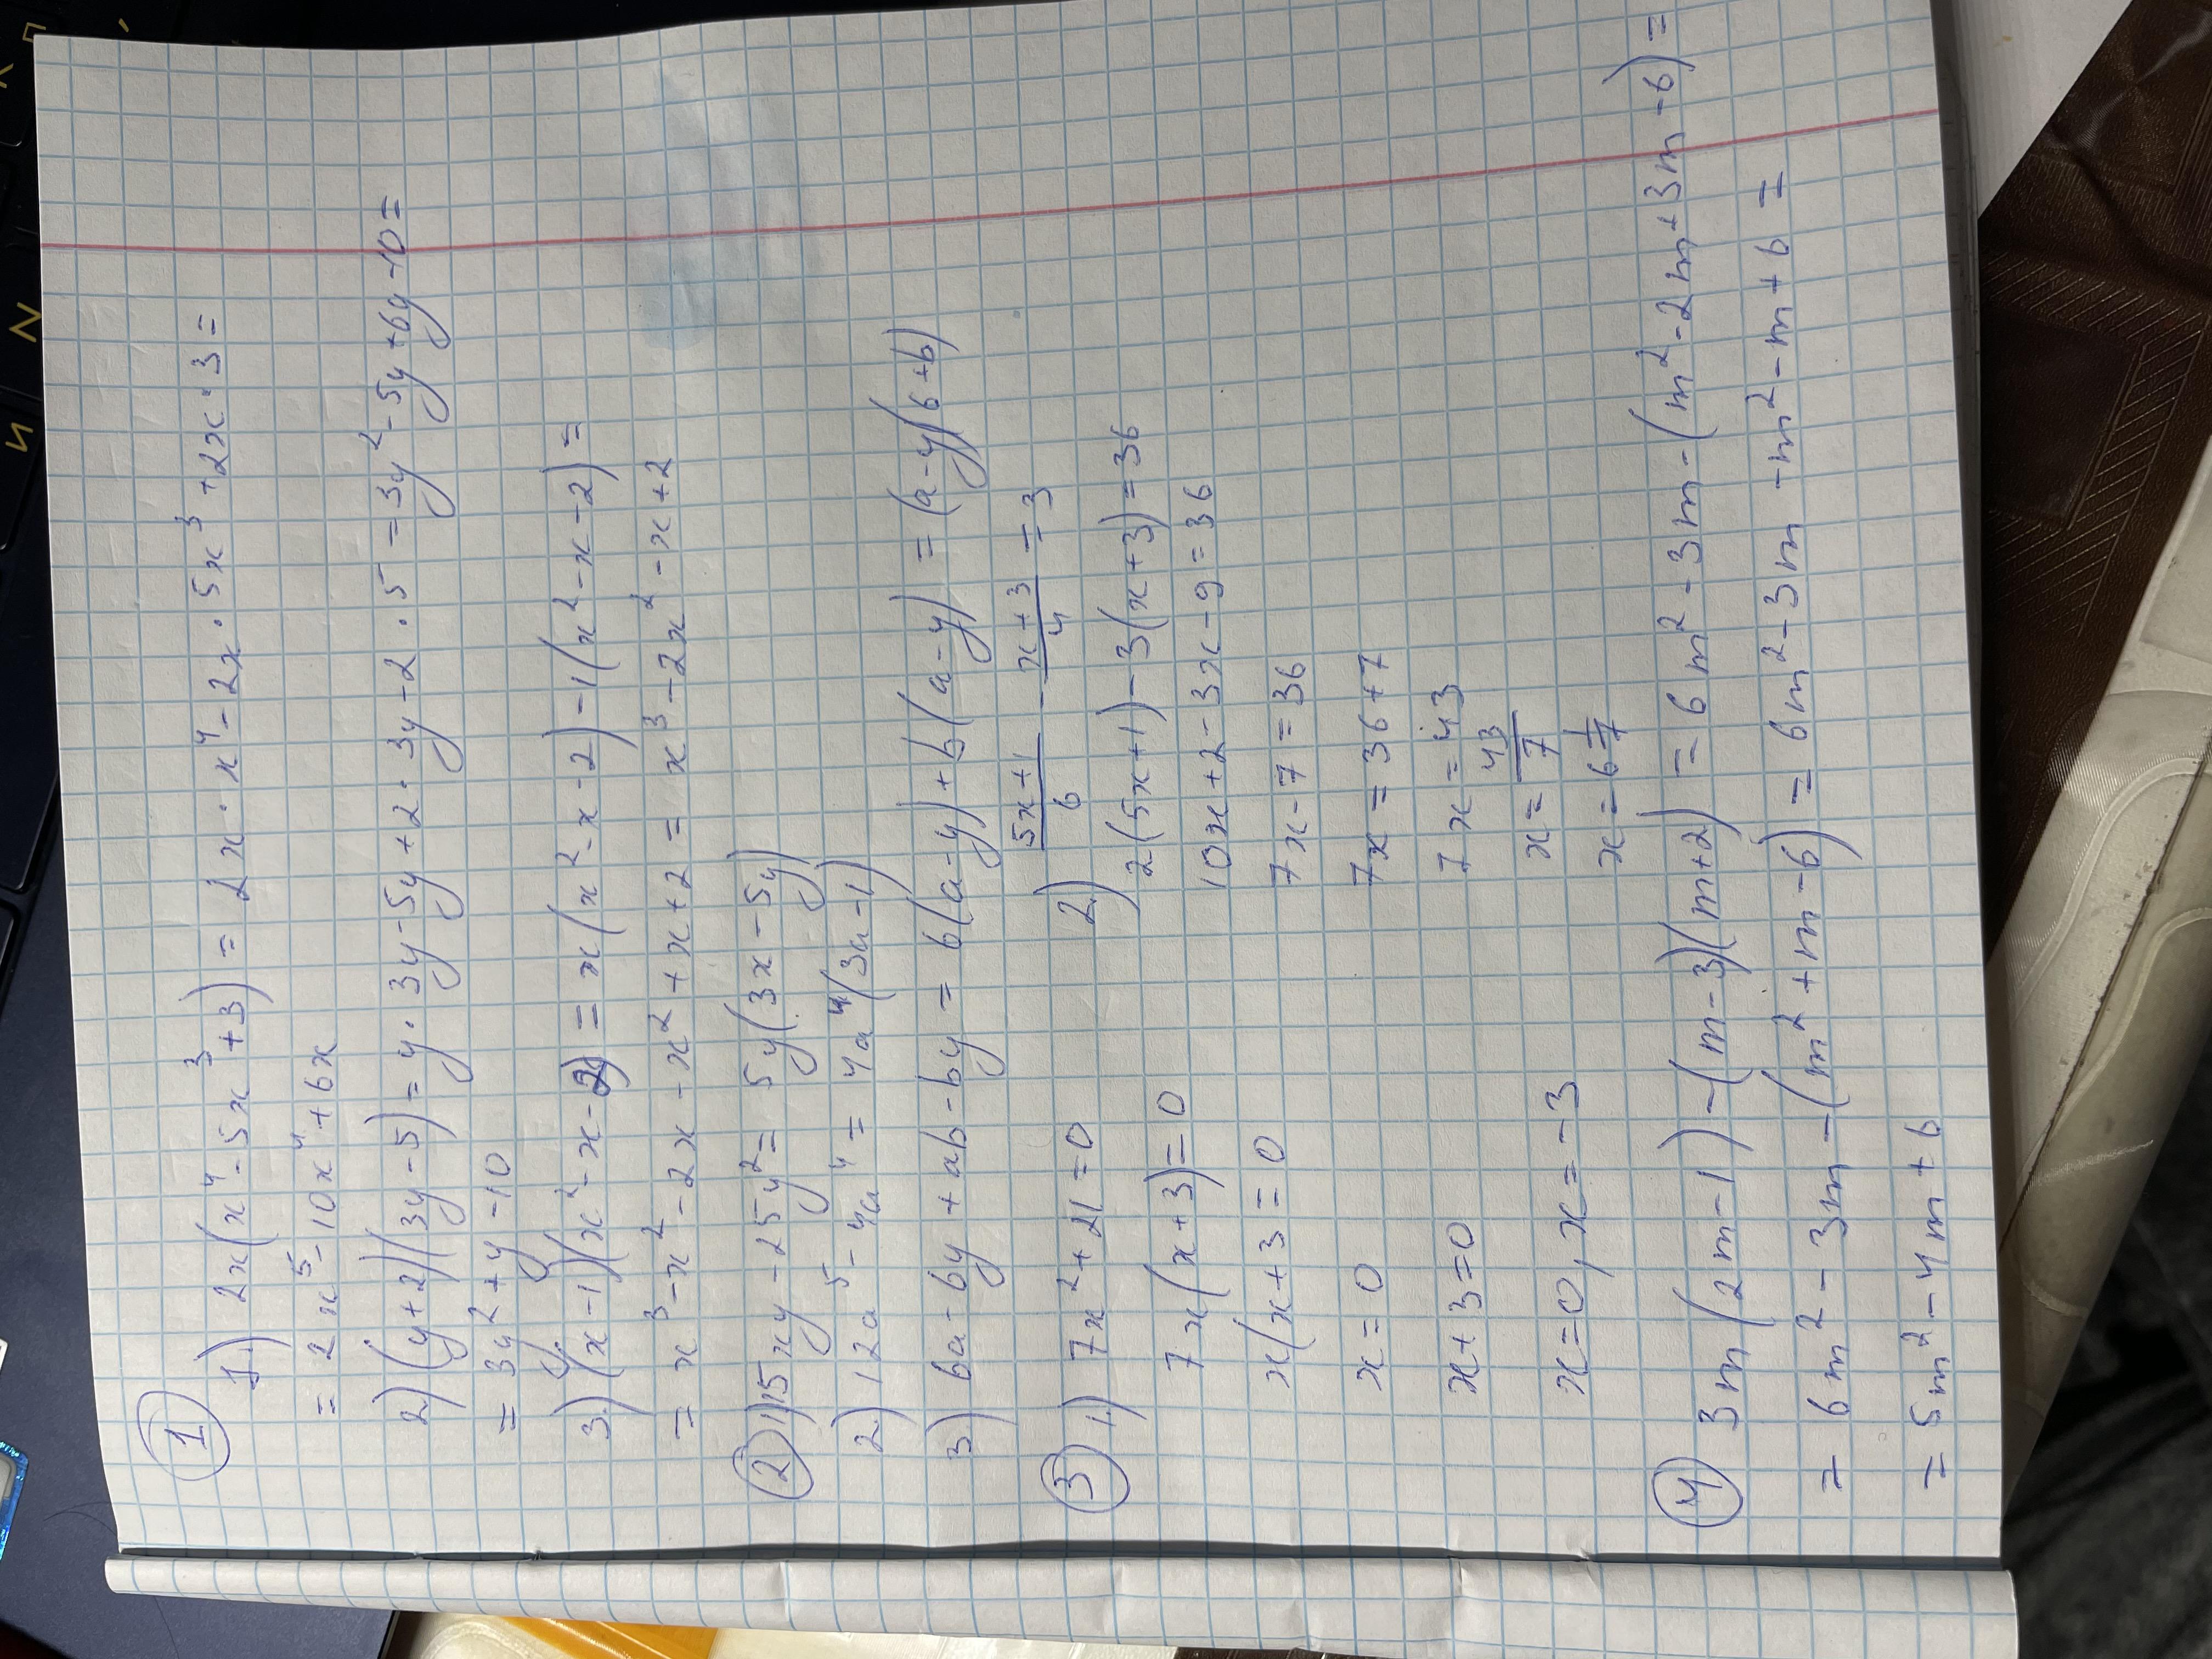 1
1.) 2x(x⁴-5x³+3) = 2x·x⁴-2x·5x³+2x·3=
= 2x⁵-10x⁴+6x
2) (y+2)(3y-5)=y·3y-5y+2·3y-2·5=3y²-5y+6y-10=
= 3y²+y-10
3.) (x-1)(x²-x-2) = x(x²-x-2)-1(x²-x-2)=
= x³-x²-2x-x²+x+2= x³-2x²-x+2
2 1) 15xy-25y²= 5y(3x-5y)
2) 12a⁵-4a⁴= 4a⁴(3a-1)
3) 6a-6y+ab-by= 6(a-y)+b(a-y) = (a-y)(6+b)
3 1.) 7x²+21=0
7x(x+3)=0
x(x+3=0
x=0
x+3=0
x=0, x=-3
2.) (5x+1)/6 - (x+3)/4 = 3
2(5x+1)-3(x+3)=36
10x+2-3x-9=36
7x-7=36
7x=36+7
7x=43
x=43/7
x=6 1/7
4 3m(2m-1)-(m-3)(m+2)=6m²-3m-(m²-2m+3m-6)=
= 6m²-3m-(m²+m-6)=6m²-3m-m²-m+6=
= 5m²-4m+6
И N